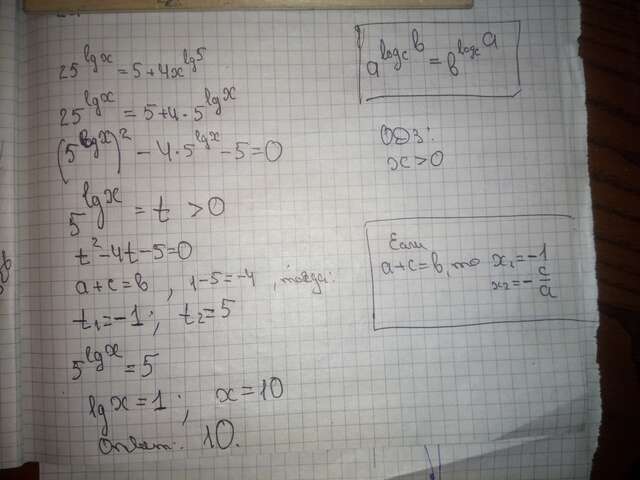 25^lgx = 5 + 4x^lg5
25^lgx = 5 + 4 · 5^lgx
(5^lgx)^2 - 4 · 5^lgx - 5 = 0
5^lgx = t > 0
t^2 - 4t - 5 = 0
a + c = b, 1 - 5 = -4, тогда:
t₁ = -1; t₂ = 5
5^lgx = 5
lgx = 1; x = 10
Ответ: 10.
a^log_c b = b^log_c a
ОДЗ:
x > 0
Если
a + c = b, то x₁ = -1
x₂ = -c/a